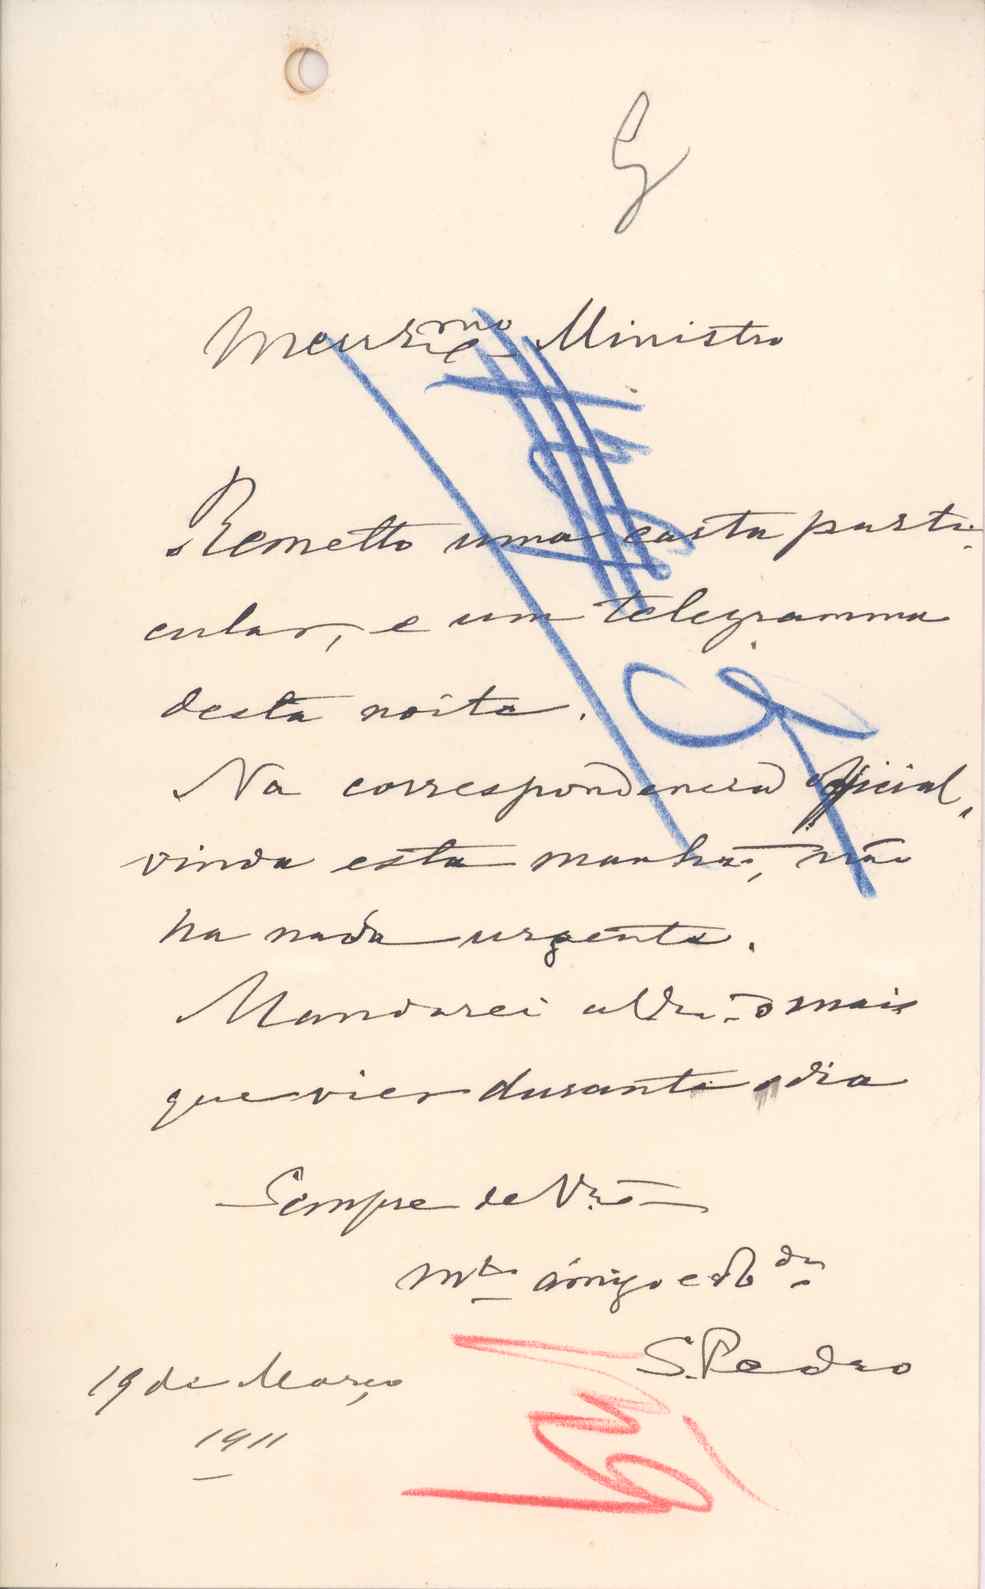 Meu Exmo Ministro
Remetto uma carta parti-
cular, e um telegramma
desta noite.
Na correspondencia official,
vinda esta manhã, não
ha nada urgente.
Mandarei a V. Exa o mais
que vier durante o dia
Sempre de V. Exa
Mto amigo e obdo
S. Pedro
19 de Março
1911